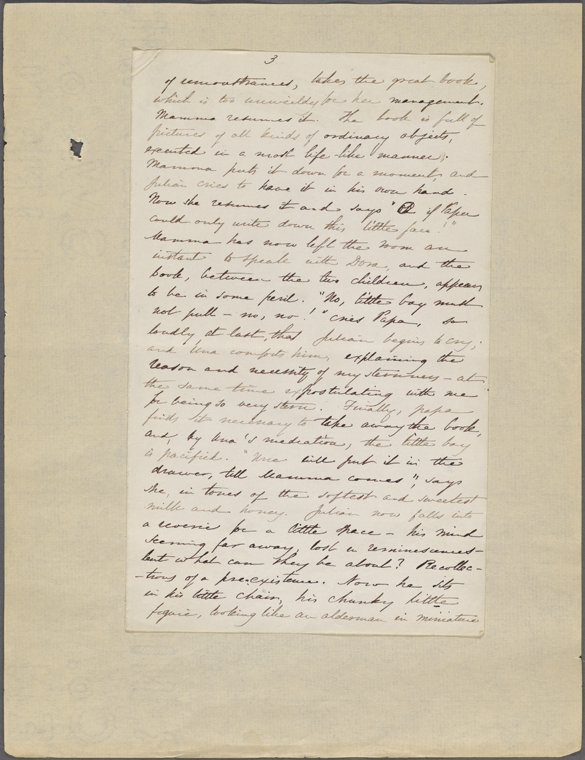 3
of remonstrances, takes the great book,
which is too unwieldy for her management.
Mamma resumes it. The book is full of
pictures of all kinds of ordinary objects,
executed in a most life-like manner.
Mamma puts it down for a moment, and
Julian cries to have it in his own hand.
Now she resumes it and says "O if Papa
could only write down this little face!"
Mamma has now left the room an
instant to speak with Dora, and the
book, between the two children, appears
to be in some peril. "No, little boy must
not pull – no, no!" cries Papa, so
loudly at last, that Julian begins to cry,
and Una comforts him, explaining the
reason and necessity of my sternness – at
the same time expostulating with me
for being so very stern. Finally, papa
finds it necessary to take away the book,
and, by Una's mediation, the little boy
is pacified. "Una will put it in the
drawer, till Mamma comes", says
she, in tones of the softest and sweetest
milk and honey. Julian now falls into
a reverie for a little space – his mind
seeming far away, lost in reminiscences –
but what can they be about? Recollec-
-tions of a pre-existence. Now he sits
in his little chair, his chunky little
figure, looking like an alderman in miniature